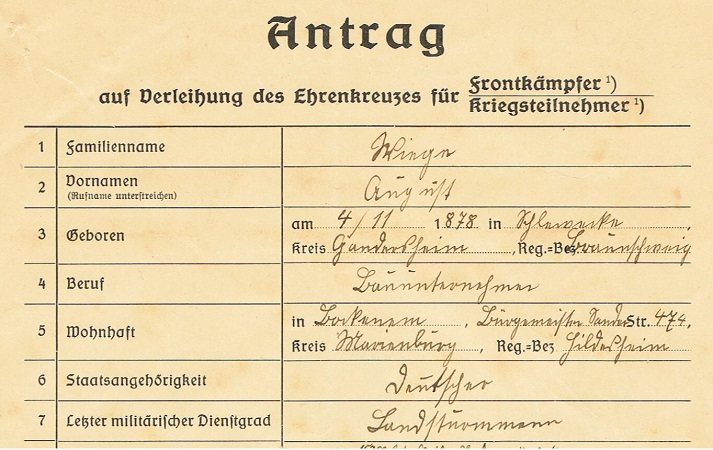 Antrag
auf Verleihung des Ehrenkreuzes für Frontkämpfer ¹)
Kriegsteilnehmer ¹)
1 Familienname Wiege
2 Vornamen August
(Rufname unterstreichen)
3 Geboren am 4/11 1878 in Schlewecke,
Kreis Gandersheim, Reg.-Bez Braunschweig
4 Beruf Bauunternehmer
5 Wohnhaft in Bockenem, Bürgermeister Sander Str. 474,
Kreis Marienburg, Reg.-Bez Hildesheim
6 Staatsangehörigkeit Deutscher
7 Letzter militärischer Dienstgrad Landsturmmann